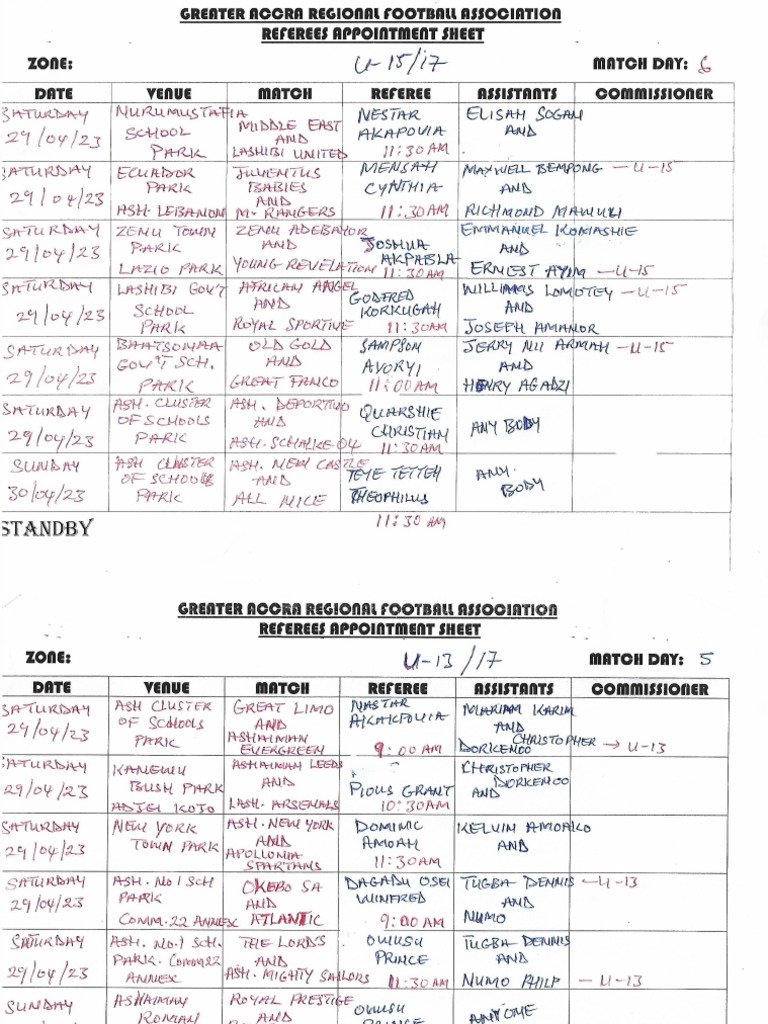 GREATER ACCRA REGIONAL FOOTBALL ASSOCIATION
REFEREES APPOINTMENT SHEET
ZONE: U-15/17 MATCH DAY: 6
DATE VENUE MATCH REFEREE ASSISTANTS COMMISSIONER
SATURDAY NURUMUSTAFIA NESTAR ELISAH SOGAH
29/04/23 SCHOOL MIDDLE EAST AKAPOVIA AND
PARK AND LASHIBI UNITED 11:30AM
SATURDAY ECUADOR JUVENTUS MENSAH MAXWELL BEMPONG - U-15
29/04/23 PARK BABIES AND CYNTHIA AND
ASH. LEBANON M. RANGERS 11:30AM RICHMOND MAWULI
SATURDAY ZENU TOWN ZENU ADEBAYOR JOSHUA EMMANUEL KOMASHIE
29/04/23 PARK AND AKPABLA AND
LAZIO PARK YOUNG REVELATION 11:30AM ERNEST AYIM - U-15
SATURDAY LASHIBI GOV'T AFRICAN ANGEL GODFRED WILLIAMS LOMOTEY - U-15
29/04/23 SCHOOL AND KORKUGAH AND
PARK ROYAL SPORTIVE 11:30AM JOSEPH AMANOR
SATURDAY BAATSONAA OLD GOLD SAMPSON JERRY NII ARMAH - U-15
29/04/23 GOV'T SCH. AND AVORYI AND
PARK GREAT FANCO 11:00AM HENRY AGADZI
SATURDAY ASH. CLUSTER ASH. DEPORTIVO QUARSHIE
29/04/23 OF SCHOOLS AND CHRISTIAN ANY BODY
PARK ASH. SCHALKE 04 11:30AM
SUNDAY ASH CLUSTER ASH. NEW CASTLE TEYE TETTEH ANY
30/04/23 OF SCHOOLS AND THEOPHILUS BODY
PARK ALL NICE
STANDBY 11:30 AM
GREATER ACCRA REGIONAL FOOTBALL ASSOCIATION
REFEREES APPOINTMENT SHEET
ZONE: U-13/17 MATCH DAY: 5
DATE VENUE MATCH REFEREE ASSISTANTS COMMISSIONER
SATURDAY ASH CLUSTER GREAT LIMO NASTAR MARIAM KARIM
29/04/23 OF SCHOOLS AND AKAKPOVIA AND
PARK ASHAIMAN EVERGREEN 9:00 AM DORKENOO CHRISTOPHER → U-13
SATURDAY KANEWU ASHAIMAN LEEDS CHRISTOPHER
29/04/23 BUSH PARK AND PIOUS GRANT DORKENOO AND
ADJEI KOJO LASH. ARSENALS 10:30AM
SATURDAY NEW YORK ASH. NEW YORK DOMINIC KELVIN AMOAKO
29/04/23 TOWN PARK AND AMOAH AND
APOLLONIA SPARTANS 11:30AM
SATURDAY ASH. NO 1 SCH OKERO SA DAGADU OSEI TUGBA DENNIS - U-13
29/04/23 PARK AND WINFRED AND
COMM. 22 ANNEX ATLANTIC 9:00AM NUMO
SATURDAY ASH. NO.1 SCH. THE LORD'S OWUSU TUGBA DENNIS
29/04/23 PARK. COMM 22 AND PRINCE AND
ANNEX ASH. MIGHTY SAILORS 11:30AM NUMO PHILP - U-13
SUNDAY ASHAIMAN ROYAL PRESTIGE OWUSU ANYONE
ROMAN AND PRINCE